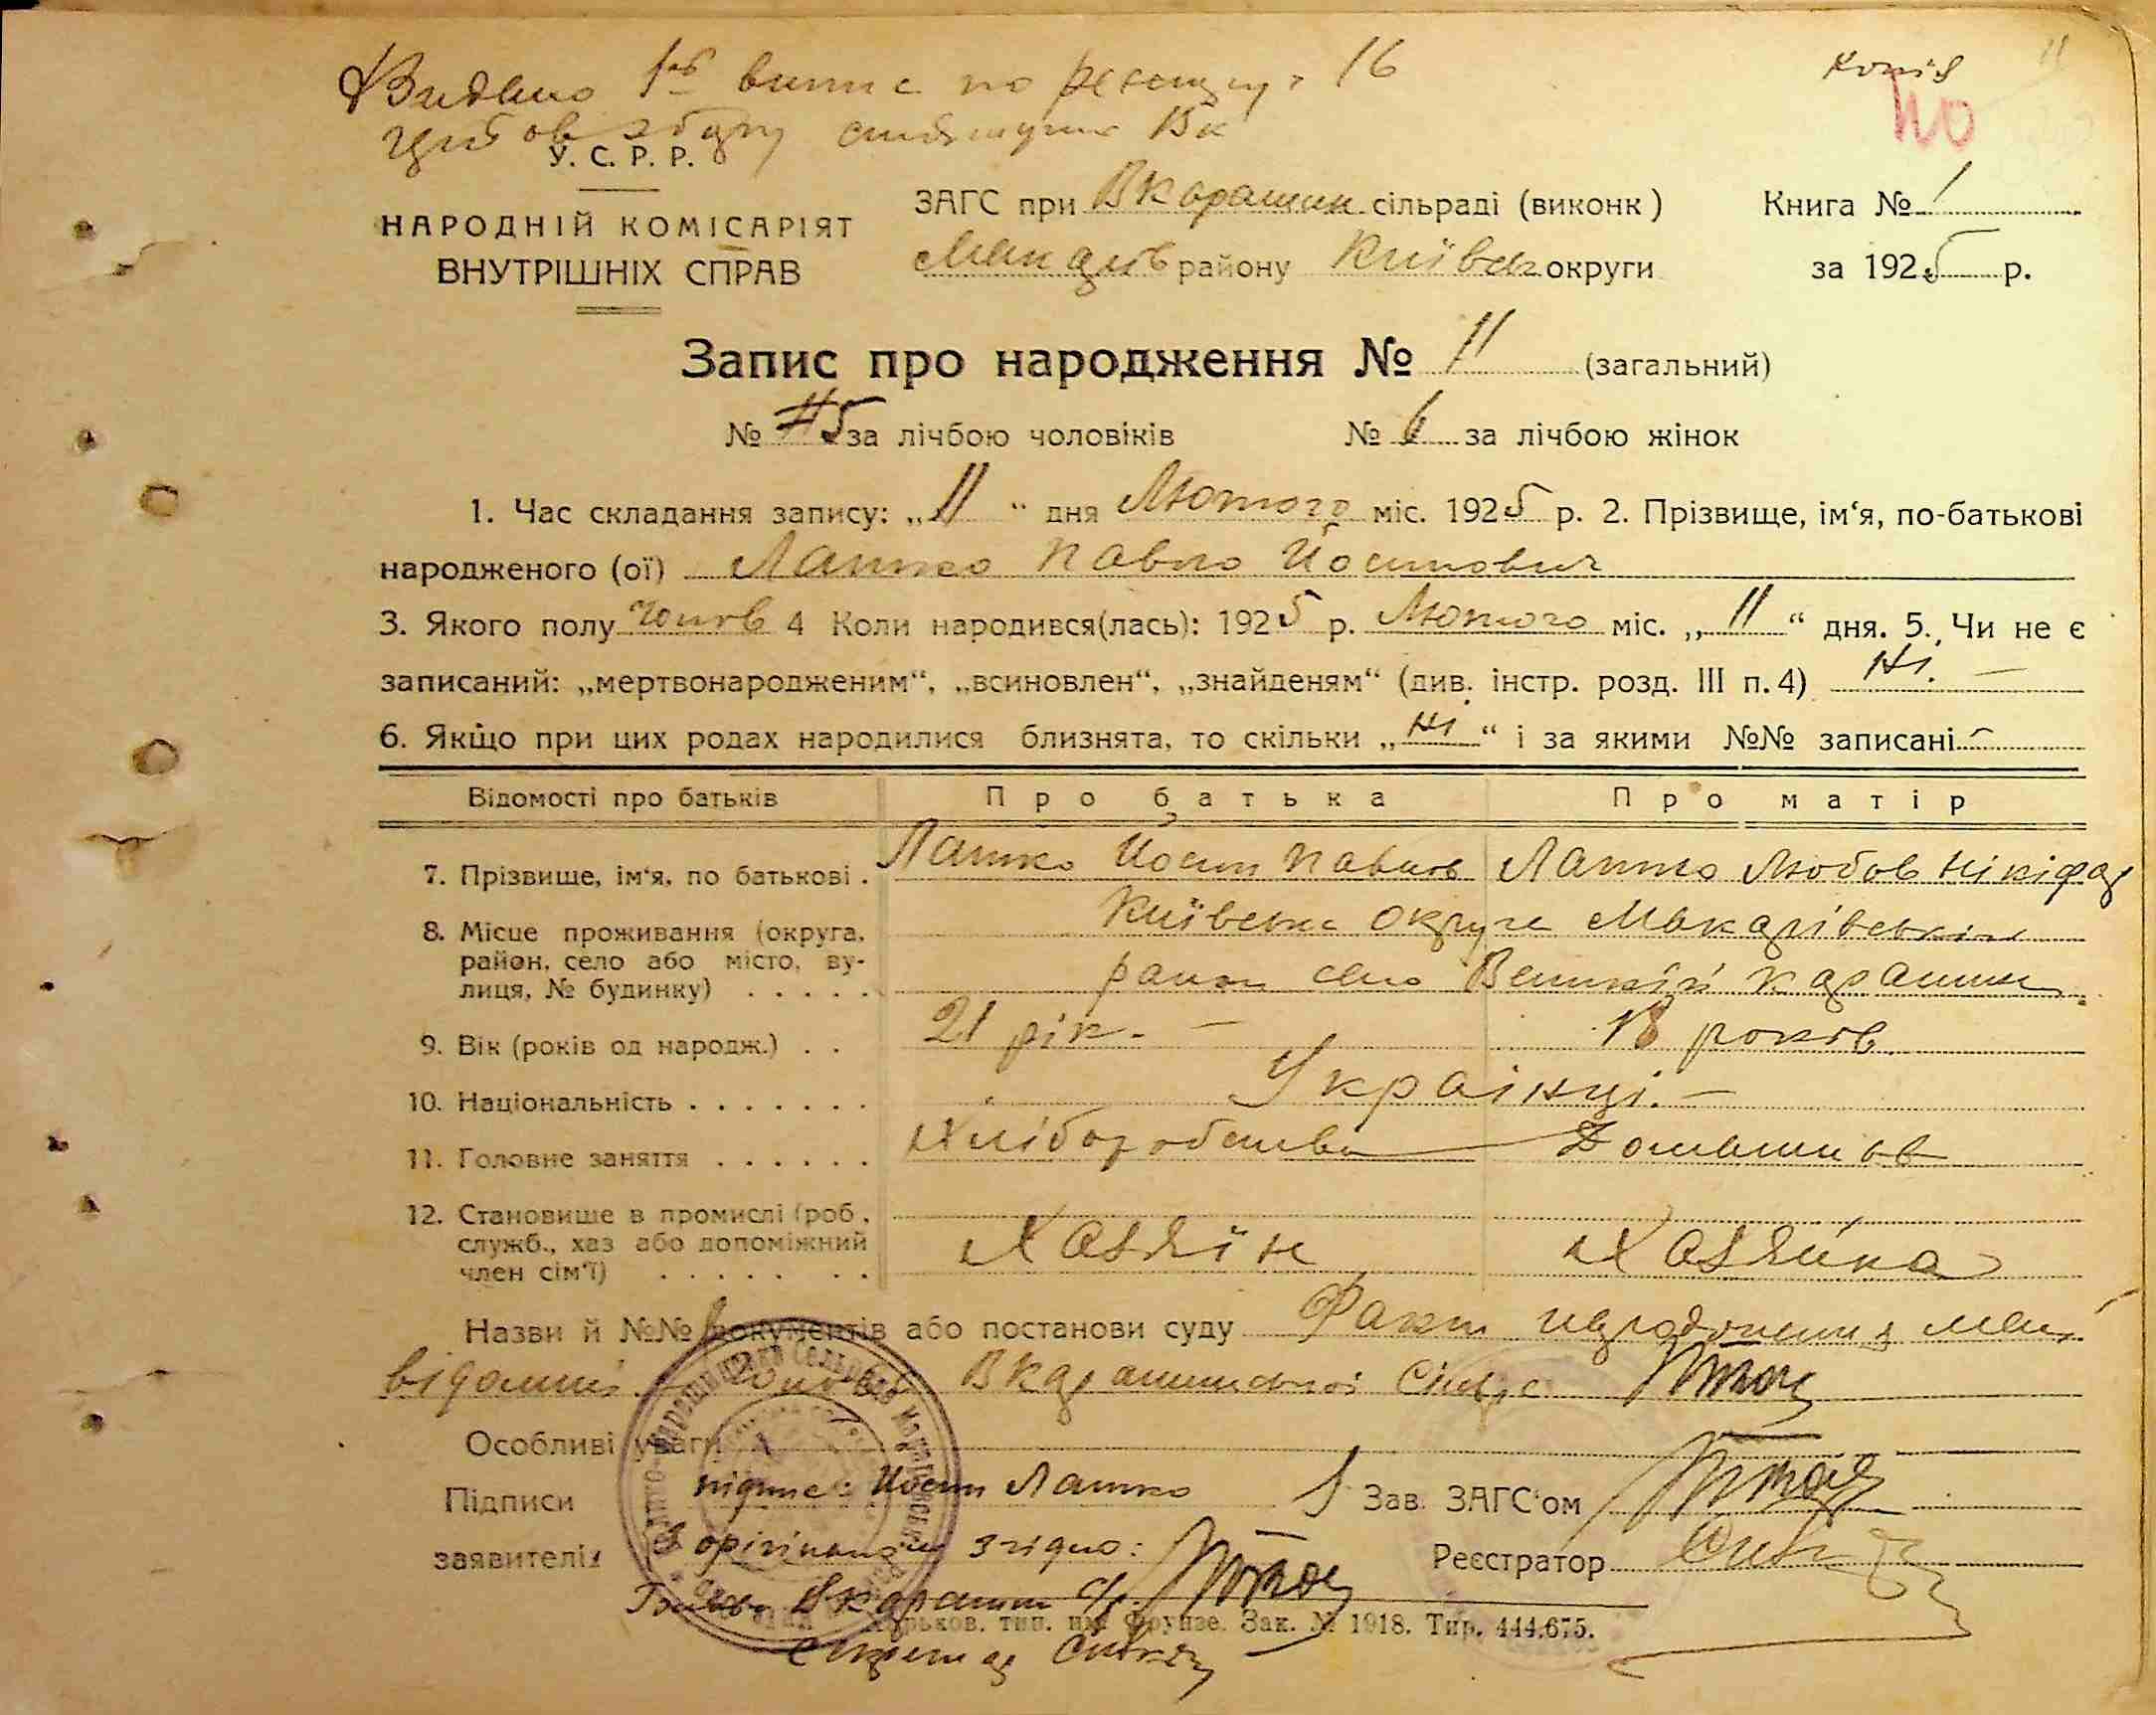 Видано 1й випис по реєстру 16
копія
У. С. Р. Р.
НАРОДНІЙ КОМІСАРІЯТ
ВНУТРІШНІХ СПРАВ
ЗАГС при ВКарашин сільраді (виконк)
Макарів району Київск округи
Книга № 1
за 1925 р.
Запис про народження № 11 (загальний)
№ 5 за лічбою чоловіків № 6 за лічбою жінок
1. Час складання запису: „11“ дня Лютого міс. 1925 р. 2. Прізвище, ім‘я, по-батькові
народженого (ої) Латко Павло Йосипович
3. Якого полу чолов 4 Коли народився(лась): 1925 р. Лютого міс. „11“ дня. 5. Чи не є
записаний: „мертвонародженим“, „всиновлен“, „знайденям“ (див. інстр. розд. III п. 4) Ні. —
6. Якщо при цих родах народилися близнята, то скільки „ні“ і за якими №№ записані —
Відомості про батьків Про батька Про матір
7. Прізвище, ім‘я, по батькові . Латко Йосип Павлов Латко Любов Нікіфор
8. Місце проживання (округа, Київська округа Макарівський
район, село або місто, ву- район село Великий Карашин
лиця, № будинку) . . . . .
9. Вік (років од народж.) . . 21 рік. — 18 років
10. Національність . . . . . . . Українці. —
11. Головне заняття . . . . . . Хліборобства Домашнов
12. Становище в промислі (роб.,
служб., хаз або допоміжний Хазяїн Хазяйка
член сім‘ї) . . . . . . .
Назви й №№ документів або постанови суду Факт народження мені
відомий. Голова ВКарашинської Сільр
Особливі уваги
Підписи підпис: Йосип Латко Зав. ЗАГС‘ом
заявителів З орігіналом згідно: Реєстратор
Голова ВКарашин с/р.
Харьков. тип. им Фрунзе. Зак. № 1918. Тир. 444.675.
Секретар